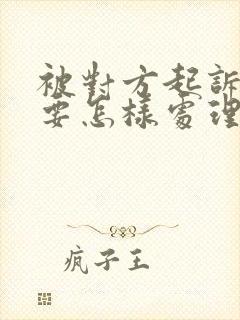 被對方起訴
要怎樣處理
疯子王